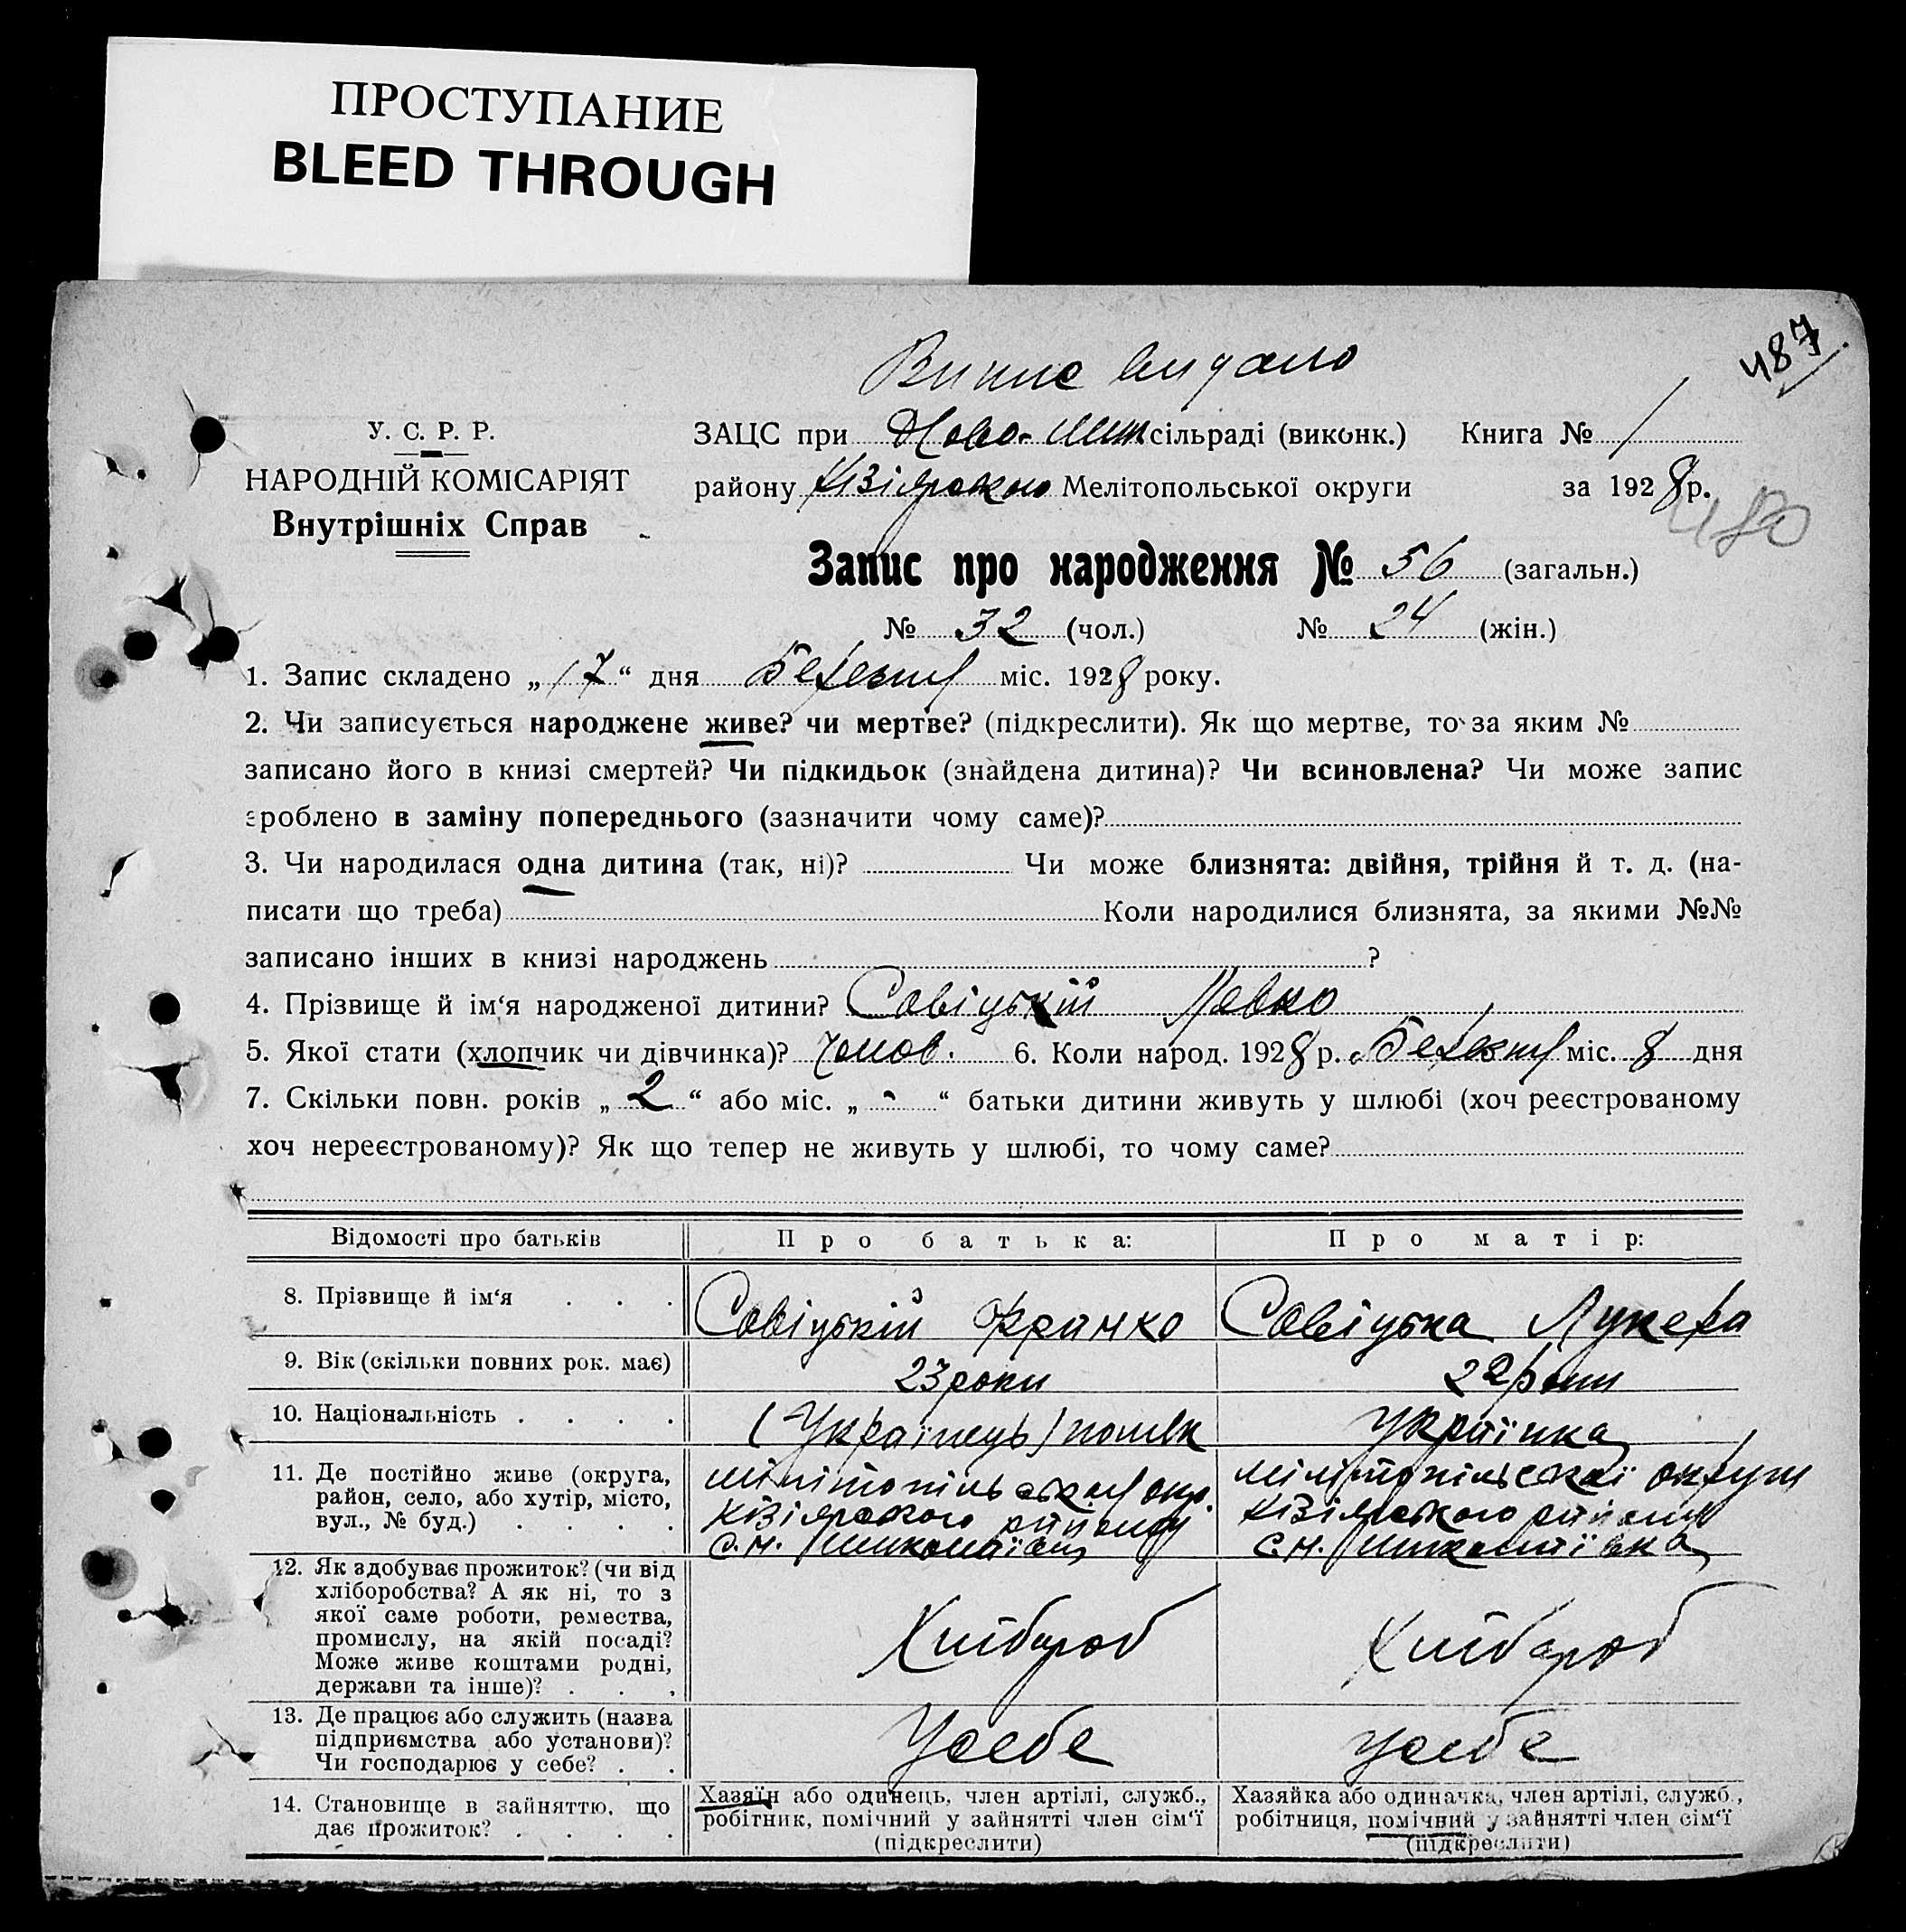 ПРОСТУПАНИЕ
BLEED THROUGH
Випис видано
487
У. С. Р. Р.
НАРОДНІЙ КОМІСАРІЯТ
Внутрішніх Справ
ЗАЦС при Ново- сільраді (виконк.) Книга № 1
району Кізіярского Мелітопольської округи за 1928 р.
480
Запис про народження № 56 (загальн.)
№ 32 (чол.) № 24 (жін.)
1. Запис складено „17“ дня Березня міс. 1928 року.
2. Чи записується народжене живе? чи мертве? (підкреслити). Як що мертве, то за яким №
записано його в книзі смертей? Чи підкидьок (знайдена дитина)? Чи всиновлена? Чи може запис
зроблено в заміну попереднього (зазначити чому саме)?
3. Чи народилася одна дитина (так, ні)? Чи може близнята: двійня, трійня й т. д. (на-
писати що треба) Коли народилися близнята, за якими №№
записано інших в книзі народжень ?
4. Прізвище й ім‘я народженої дитини? Савіцькій Павло
5. Якої стати (хлопчик чи дівчинка)? Чолов. 6. Коли народ. 1928 р. Березня міс. 8 дня
7. Скільки повн. років „2“ або міс. „-“ батьки дитини живуть у шлюбі (хоч реєстрованому
хоч нереєстрованому)? Як що тепер не живуть у шлюбі, то чому саме?
Відомості про батьків Про батька: Про матір:
8. Прізвище й ім‘я . . . Савіцькій Франко Савіцька Лукера
9. Вік (скільки повних рок. має) 23 роки 22 роки
10. Національність . . . . (Українець) поляк Українка
11. Де постійно живе (округа,
район, село, або хутір, місто,
вул., № буд.) . . . .
Мілітопільської окр.
Кізіярского району
с. Н. Миколаївці
Мілітопільської округи
Кізіярского району
с. Н. Миколаївка
12. Як здобуває прожиток? (чи від
хліборобства? А як ні, то з
якої саме роботи, ремества,
промислу, на якій посаді?
Може живе коштами родні,
держави та інше)? . . .
Хлібороб Хлібороб
13. Де працює або служить (назва
підприємства або установи)?
Чи господарює у себе? . .
У себе у себе
14. Становище в зайняттю, що
дає прожиток? . . . .
Хазяїн або одинець, член артілі, служб.,
робітник, помічний у зайнятті член сім‘ї
(підкреслити)
Хазяйка або одиначка, член артілі, служб.,
робітниця, помічний у зайнятті член сім‘ї
(підкреслити)